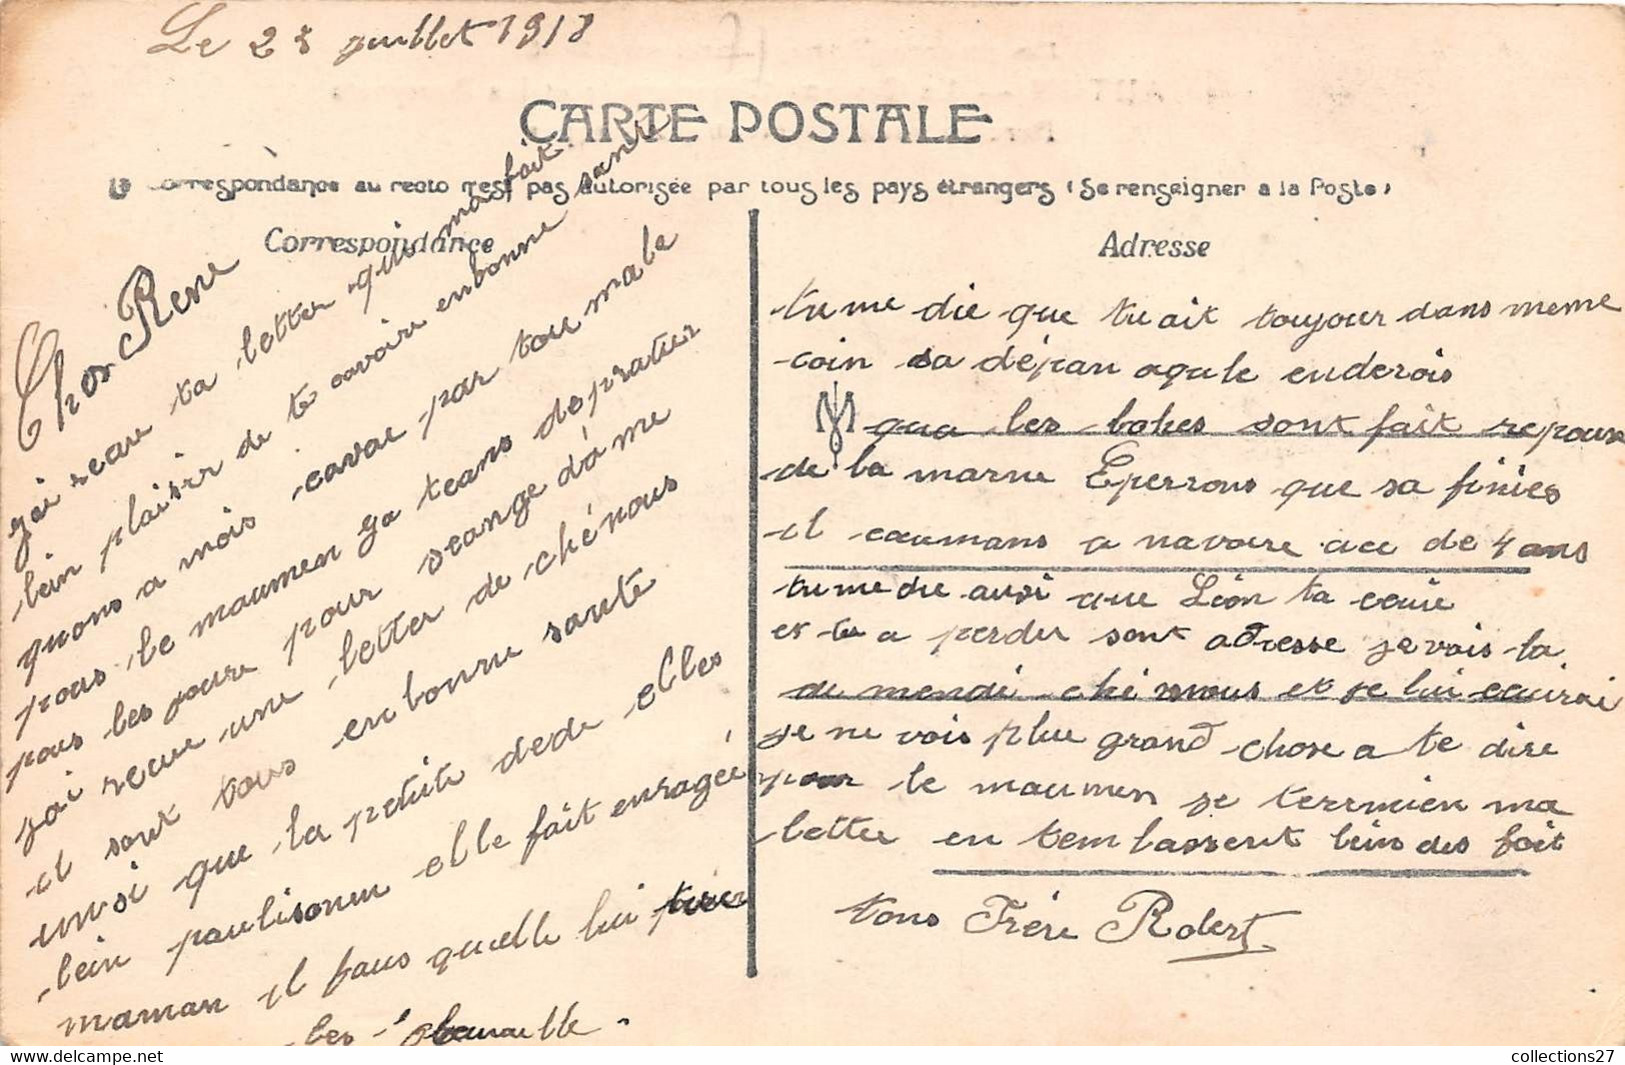 Le 23 juillet 1918
CARTE POSTALE
La Correspondance au recto n'est pas autorisée par tous les pays étrangers (Se renseigner à la Poste)
Correspondance
Adresse
Cher Rene
jai recue ta letter qui ma fait
bein plaisir de te savoire enbonne santé
quons a mois cavae par tou male
pous le maumen ya teans de pratier
pous les joure pour scange d'a me
jai recue une letter de ché nous
il sont tous en bonne sante
unsi que la petite dede elles
bein paulisonne elle fait enragée
maman il faus quelle lui tirer
les
tu me die que tu ait toujour dans meme
coin sa dépan aqule enderois
qua les bohes sont fait repouse
de la marne Eperrons que sa finies
il caumans a navoire acc de 4 ans
tu me die ausi que Léon ta ecrie
et tu a perdu sont adresse je vois la
de mende ché nous et je lui ecrirai
je ne vois plue grand chose a te dire
pour le maumen je terrmien ma
letter en temlassent bein des foit
tons Frére Robert
collections27